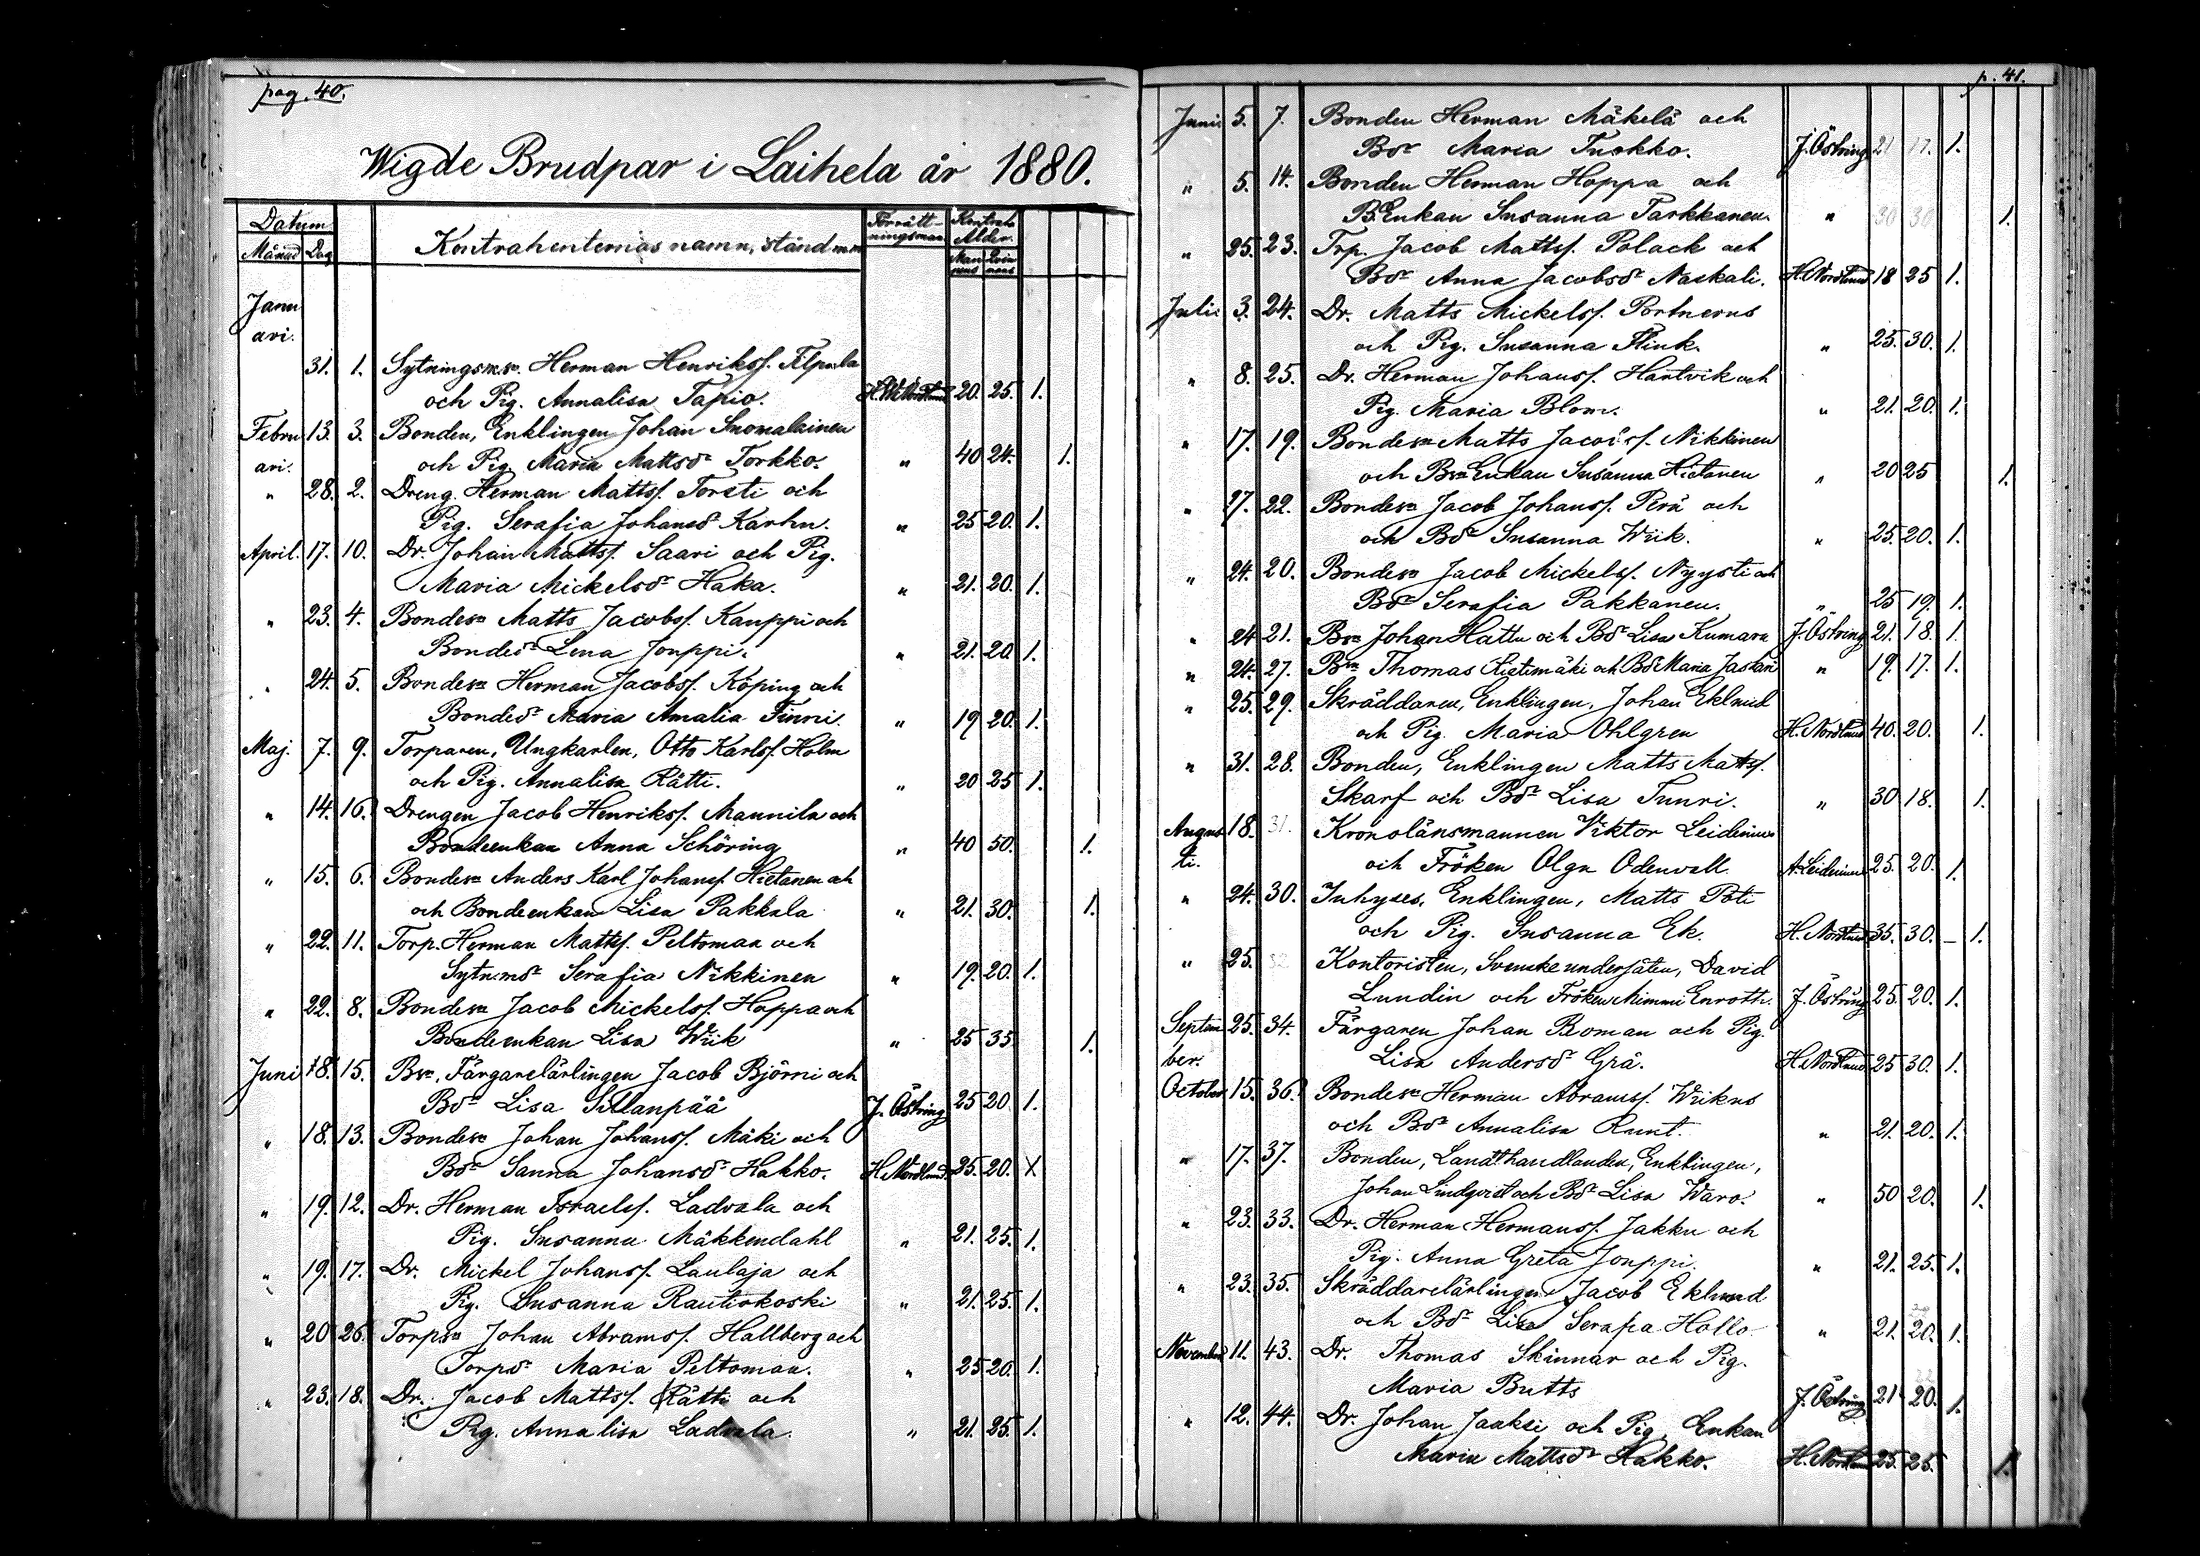 pag. 40.
Wigde Brudpar i Laihela år 1880.
Datum
Månad Dag
Kontrahenternas namn, stånd m.m.
Förrätt-
ningsman
Kontrah.
Ålder.
Man
nens
Qvin
nans
Janu
ari.
31. 1. Sytningsm.sn. Herman Henrikss. Filppula
och Pig. Annalisa Tapio. 20. 25. 1.
Febru 13. 3. Bonden, Enklingen Johan Snomalainen
ari. och Pig. Maria Mattsdr Torkko. " 40 24. 1.
" 28. 2. Dreng. Herman Mattss. Torsti och
Pig. Serafia Johansdr Karhu. " 25 20. 1.
April. 17. 10. Dr. Johan Mattss. Saari och Pig.
Maria Mickelsdr Haka. " 21. 20. 1.
" 23. 4. Bondesn Matts Jacobss. Kauppi och
Bondedr Lena Jouppi. " 21. 20. 1.
" 24. 5. Bondesn Herman Jacobss. Köping och
Bondedr Maria Amalia Finni. " 19 20. 1.
Maj. 7. 9. Torparen, Ungkarlen, Otto Karlss. Holm
och Pig. Annalisa Rätti. " 20 25 1.
" 14. 16. Drengen Jacob Henrikss. Mannila och
Bondeenkan Anna Schöring " 40 50. 1.
" 15. 6. Bondesn Anders Karl Johanss. Hietanen och
och Bondeenkan Lisa Pakkala " 21. 30. 1.
" 22. 11. Torp. Herman Mattss. Peltomaa och
Sytn.msdr Serafia Nikkinen " 19. 20. 1.
" 22. 8. Bondesn Jacob Mickelss. Hoppa och
Bondeenkan Lisa Wiik " 25 35. 1.
Juni 18. 15. Bsn, Färgarelärlingen Jacob Björni och
Bdr Lisa Sillanpää J. Östring 25 20. 1.
" 18. 13. Bondesn Johan Johanss. Mäki och
Bdr Sanna Johansdr Hakko. H. Nordlund 25. 20. 1.
" 19. 12. Dr. Herman Israelss. Ladvala och
Pig. Susanna Mäkkendahl " 21. 25. 1.
" 19. 17. Dr. Mickel Johanss. Laulaja och
Pig. Susanna Rautiokoski " 21. 25. 1.
" 20 26. Torpsn Johan Abramss. Hallberg och
Torpdr Maria Peltomaa. " 25 20. 1.
" 23. 18. Dr. Jacob Mattss. Rätti och
Pig. Annalisa Ladvala. " 21. 25. 1.
p. 41.
Juni 5. 7. Bonden Herman Mäkelä och
Bdr Maria Tuokko. J. Östring 21 17. 1.
" 5. 14. Bonden Herman Hoppa och
B.Enkan Susanna Tarkkanen. " 30 30 1.
" 25. 23. Trp. Jacob Mattss. Polack och
Bdr Anna Jacobsdr Naskali. H. Nordlund 18 25 1.
Juli 3. 24. Dr. Matts Mickelss. Portnerus
och Pig. Susanna Flink. " 25. 30. 1.
" 8. 25. Dr. Herman Johanss. Hartvik och
Pig. Maria Blom. " 21. 20. 1.
" 17. 19. Bondesn Matts Jacobss. Nikkinen
och Bsn Enkan Susanna Hietanen " 20 25 1.
" 17. 22. Bondesn Jacob Johanss. Perä och
och Bdr Susanna Wiik. " 25. 20. 1.
" 24. 20. Bondesn Jacob Mickelss. Nyysti och
Bdr Serafia Pakkanen. " 25 19. 1.
" 24 21. Bsn Johan Hattu och Bdr Lisa Kumara J. Östring 21. 18. 1.
" 24. 27. Bsn Thomas Lietemäki och Bdr Maria Jaskari " 19. 17. 1.
" 25. 29. Skräddaren, Enklingen, Johan Eklund
och Pig. Maria Ohlgren H. Nordlund 40. 20. 1.
" 31. 28. Bonden, Enklingen Matts Mattss.
Skarf och Bdr Lisa Tunri. " 30 18. 1.
Augus 18. 31. Kronolänsmannen Viktor Leidenius
ti. och Fröken Olga Odenvall. A. Leidenius 25. 20. 1.
" 24. 30. Inhyses, Enklingen, Matts Poti
och Pig. Susanna Ek. H. Nordlund 35. 30. – 1.
" 25. 32 Kontoristen, Svenske undersåten, David
Lundin och Fröken Mimmi Enroth. J. Östring 25. 20. 1.
Septem 25. 34. Färgaren Johan Roman och Pig.
ber. Lisa Andersdr Grå. H. Nordlund 25 30. 1.
October 15. 36. Bondesn Herman Abramss. Wiikus
och Bdr Annalisa Runt. " 21. 20. 1.
" 17. 37. Bonden, Landthandlanden, Enklingen,
Johan Lindqvist och Bdr Lisa Waro. " 50 20. 1.
" 23. 33. Dr. Herman Hermanss. Jakku och
Pig. Anna Greta Jouppi. " 21. 25. 1.
" 23. 35. Skräddarelärlingen Jacob Eklund
och Bdr Lisa Serafia Hollo. " 21. 20. 1.
November 11. 43. Dr. Thomas Skinnar och Pig.
Maria Butts J. Östring 21 20. 1.
" 12. 44. Dr. Johan Jaaksi och Pig. Enkan
Maria Mattsdr Hakko. H. Nordlund 25. 25. 1.